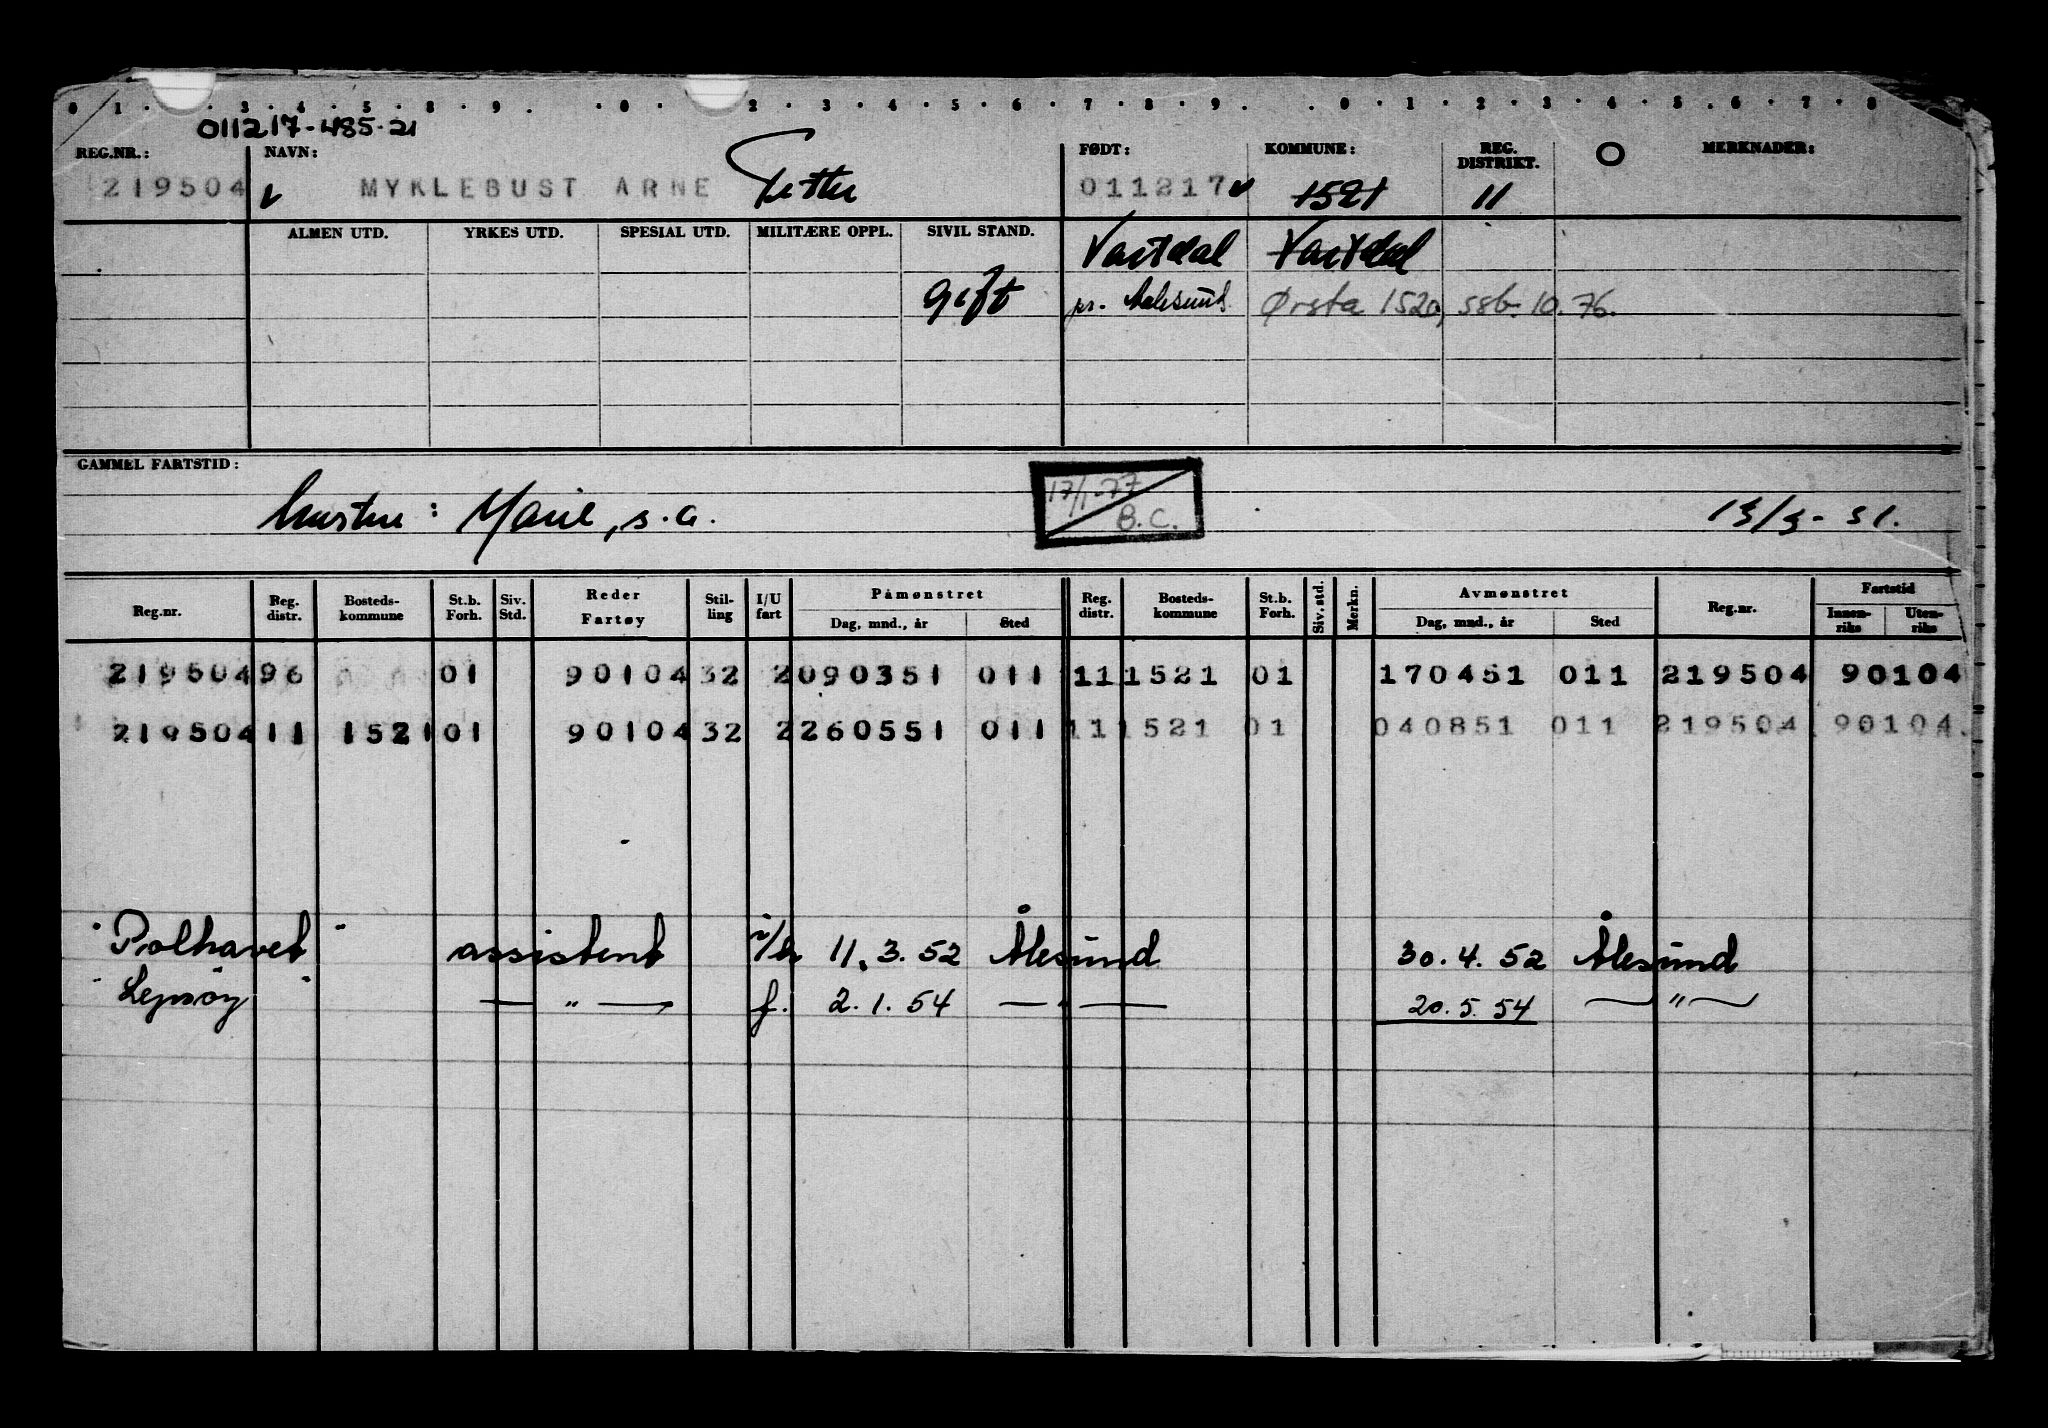 0 1 . 3 . 4 . 5 . 8 . 9 . . 0 . 2 . 3 . 4 . 5 . 6 . 7 . 8 . 9 . . 0 . 1 . 2 . 3 . 4 . 5 . 6 . 7 . 8
011217-485-21
REG.NR.: NAVN: FØDT: KOMMUNE: REG. DISTRIKT. O MERKNADER:
219504 MYKLEBUST ARNE Petter 011217 1521 11
ALMEN UTD. YRKES UTD. SPESIAL UTD. MILITÆRE OPPL. SIVIL STAND. Vartdal Vartdal
gift pr. Aalesund. Ørsta 1520, ssb. 10.76.
GAMMEL FARTSTID:
hustru: Marie, s.a. 17/1-77 B.C. 13/3-51.
Reg.nr. Reg. distr. Bosteds-kommune St.b. Forh. Siv. Std. Reder Fartøy Stil-ling I/U fart Påmønstret Dag, mnd., år Sted Reg. distr. Bosteds-kommune St.b. Forh. Siv. std. Merkn. Avmønstret Dag, mnd., år Sted Reg.nr. Fartstid Innen-riks Uten-riks
219504 96 01 90104 32 2 090351 011 11 1521 01 170451 011 219504 90104
219504 11 1521 01 90104 32 2 260551 011 11 1521 01 040851 011 219504 90104.
"Polhavet" assistent 11.3.52 Ålesund 30.4.52 Ålesund
"Lepsøy" — " — f. 2.1.54 — " — 20.5.54 — " —